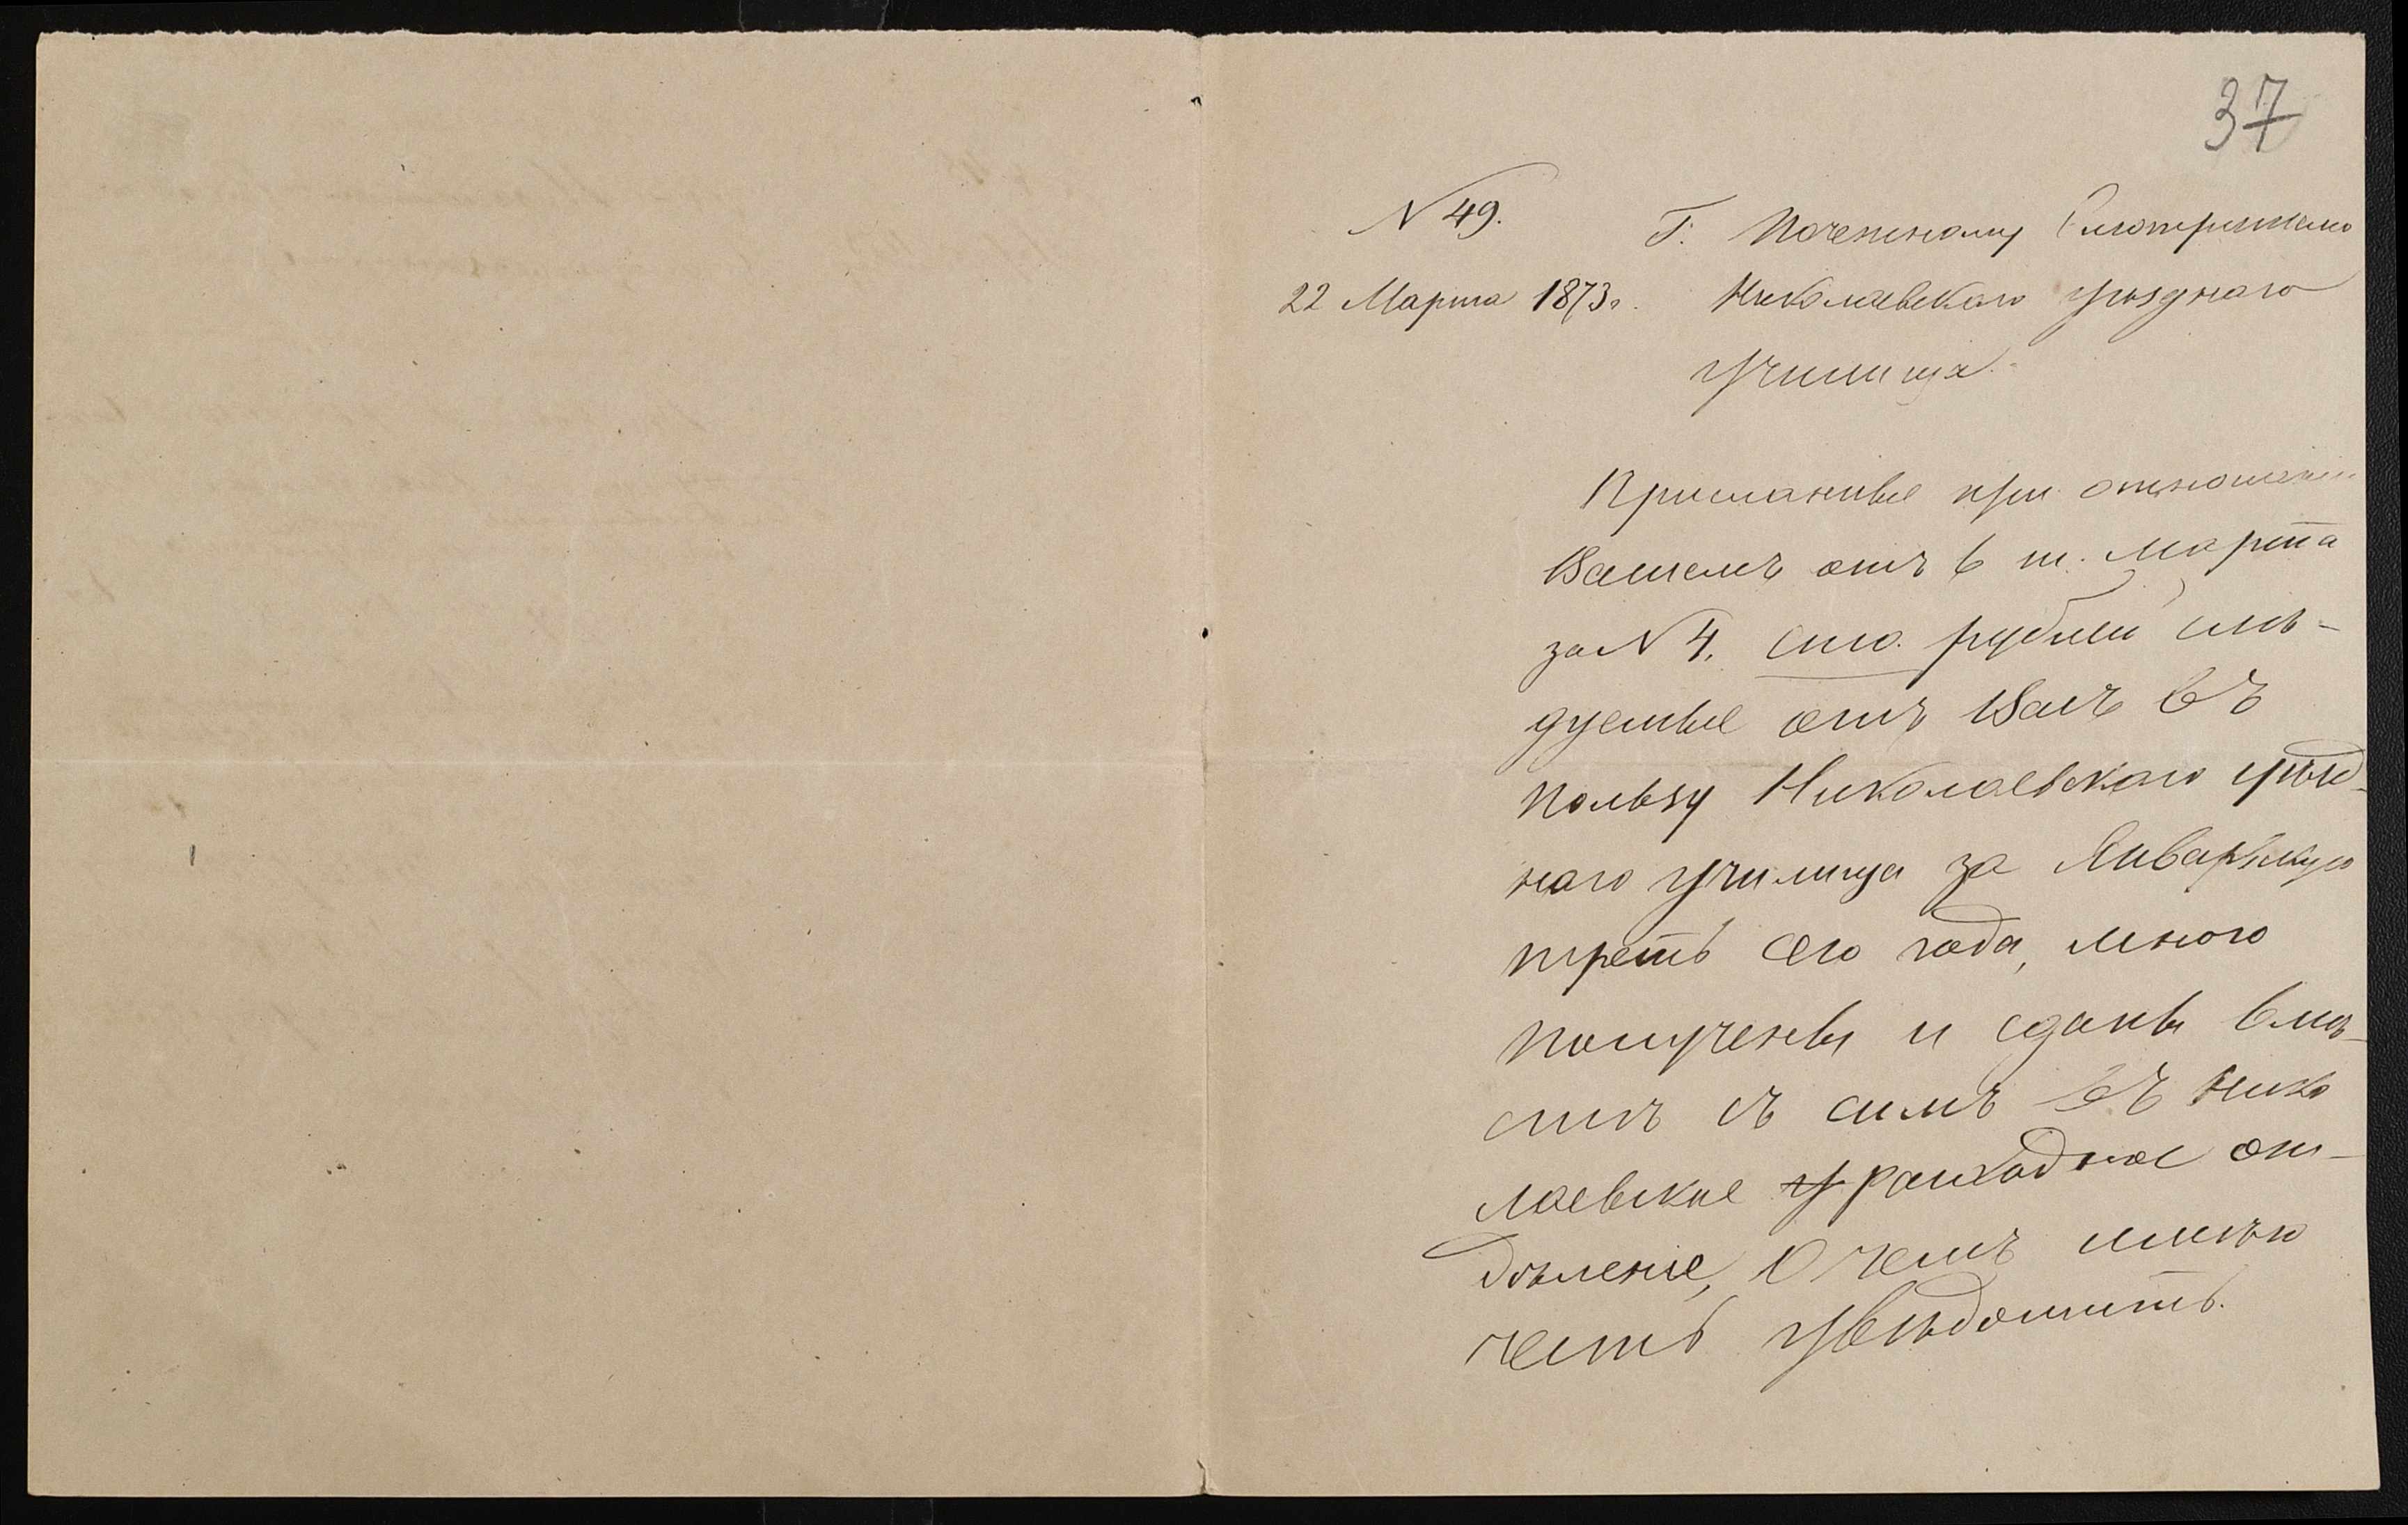 37
N 49.
Г. Почетному Смотрителю
22 Марта 1873 г. Николаевскаго уѣзднаго
училища.
Присланные при отношении
Вашемъ отъ 6 т. Марта
за N 4, сто рублей слѣ-
дуемые отъ Васъ въ
пользу Николаевскаго уѣзд-
наго училища за Январскую
треть сего года, мною
получены и сданы вмѣ-
стѣ съ симъ въ Нико
лаевское у расходное от-
дѣленіе, о чемъ имѣю
честь увѣдомить.